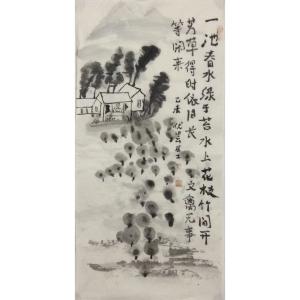 一池春水绿于苔水上花枝竹间开
芳草得时依旧长 文禽无事
等闲来